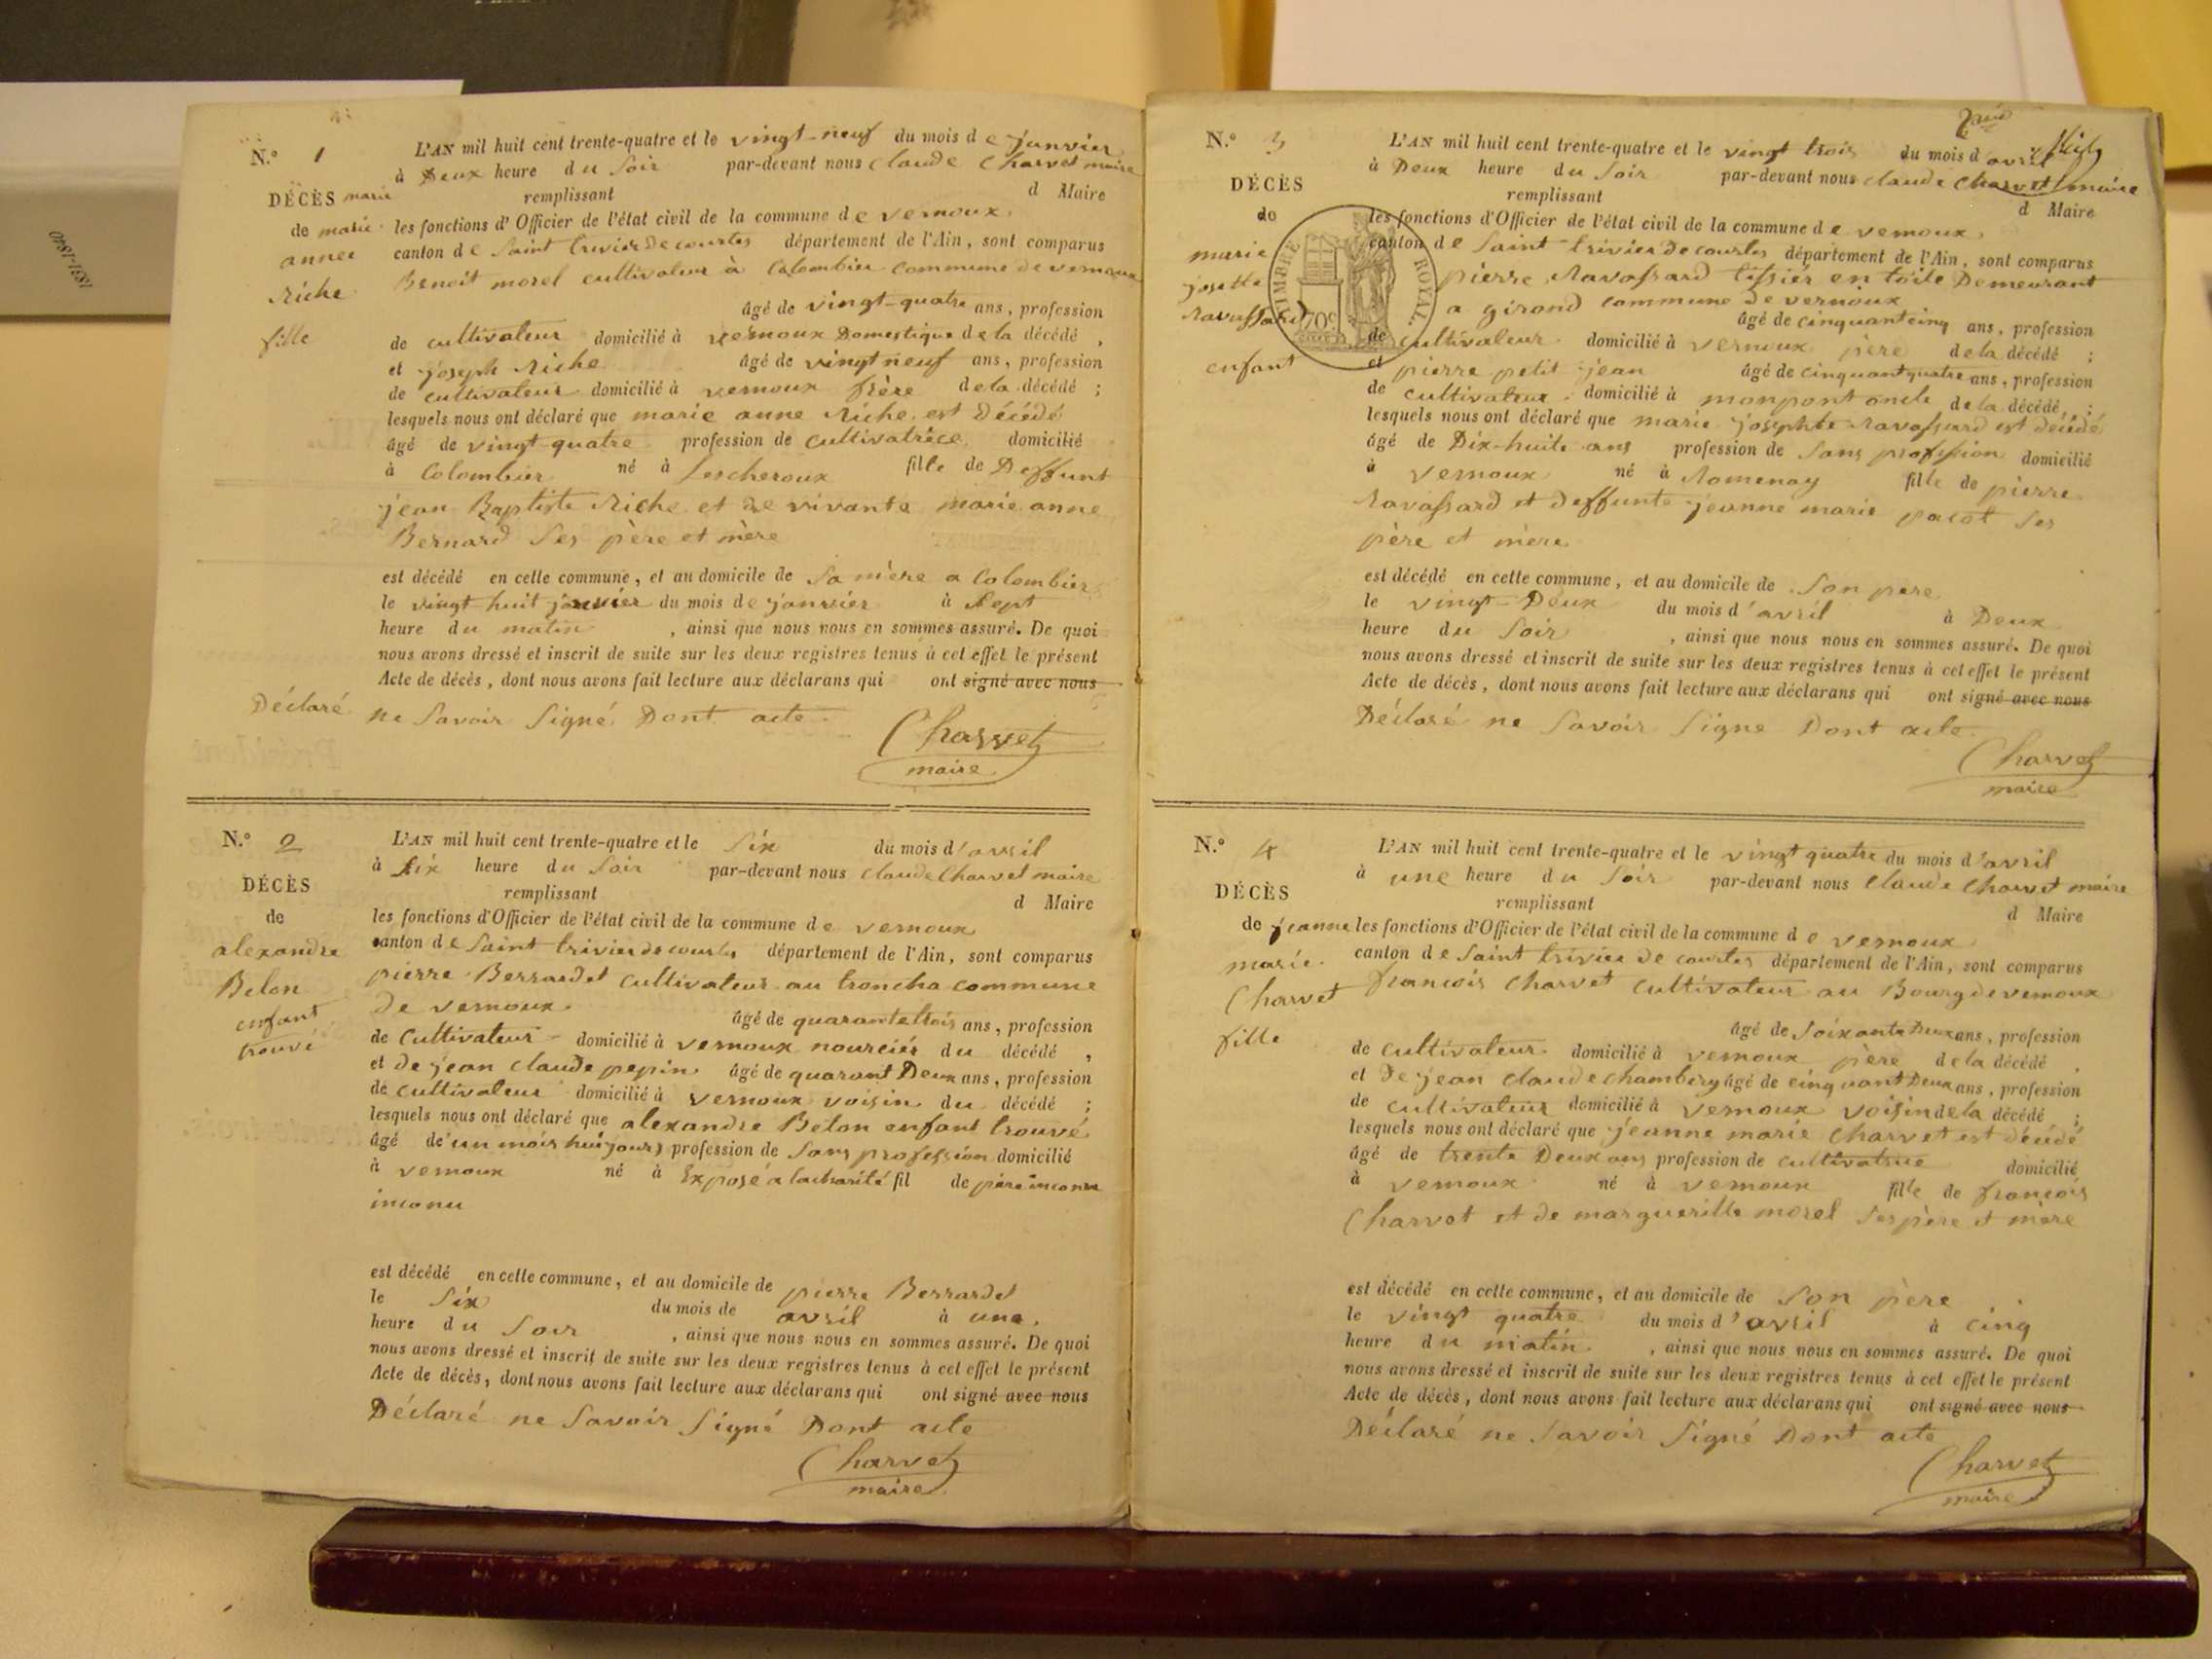 1831-1840
N.° 1
DÉCÈS marie
de marie
annee
Riche
fille
L'AN mil huit cent trente-quatre et le vingt-neuf du mois de janvier
à Deux heure du soir par-devant nous claude Charvet maire
remplissant d Maire
les fonctions d'Officier de l'état civil de la commune de vernoux
canton de Saint trivier de courtes département de l'Ain, sont comparus
Benoit morel cultivateur à Colombier commune de vernoux
âgé de vingt-quatre ans, profession
de cultivateur domicilié à vernoux Domestique de la décédé ,
et joseph Riche âgé de vingt neuf ans, profession
de cultivateur domicilié à vernoux frère de la décédé ;
lesquels nous ont déclaré que marie anne Riche est décédé
âgé de vingt quatre profession de cultivatrice domicilié
à Colombier né à Lescheroux fille de Deffunt
jean Baptiste Riche et de vivante marie anne
Bernard ses père et mère
est décédé en cette commune, et au domicile de sa mère a Colombier
le vingt huit janvier du mois de janvier à sept
heure du matin , ainsi que nous nous en sommes assuré. De quoi
nous avons dressé et inscrit de suite sur les deux registres tenus à cet effet le présent
Acte de décès, dont nous avons fait lecture aux déclarans qui ont signé avec nous
Déclaré ne savoir signé Dont acte
Charvet
maire
N.° 2
DÉCÈS
de
alexandre
Belon
enfant
trouvé
L'AN mil huit cent trente-quatre et le six du mois d'avril
à six heure du soir par-devant nous claude Charvet maire
remplissant d Maire
les fonctions d'Officier de l'état civil de la commune de vernoux
canton de Saint trivier de courtes département de l'Ain, sont comparus
pierre Berrardet cultivateur au troncha commune
de vernoux
âgé de quarantetrois ans, profession
de cultivateur domicilié à vernoux nourciés du décédé ,
et de jean claude pepin âgé de quarant Deux ans, profession
de cultivateur domicilié à vernoux voisin du décédé ;
lesquels nous ont déclaré que alexandre Belon enfant trouvé
âgé de un mois huijours profession de sans profession domicilié
à vernoux né à Exposé a lacharité fil de père inconu
inconu
est décédé en cette commune, et au domicile de pierre Berrardet
le six du mois de avril à une
heure du soir , ainsi que nous nous en sommes assuré. De quoi
nous avons dressé et inscrit de suite sur les deux registres tenus à cet effet le présent
Acte de décès, dont nous avons fait lecture aux déclarans qui ont signé avec nous
Déclaré ne savoir signé Dont acte
Charvet
maire
N.° 3
DÉCÈS
de
marie
josette
Ravassard
enfant
TIMBRE ROYAL.
70c
L'AN mil huit cent trente-quatre et le vingt trois du mois d avril
à Deux heure du soir par-devant nous claude Charvet maire
remplissant d Maire
les fonctions d'Officier de l'état civil de la commune de vernoux
canton de Saint trivier de courtes département de l'Ain, sont comparus
pierre Ravassard tissiér en toile Demeurant
a girond commune de vernoux
âgé de cinquantcinq ans, profession
de cultivateur domicilié à vernoux père de la décédé ;
et pierre petit jean âgé de cinquantquatre ans, profession
de cultivateur domicilié à monpont oncle de la décédé ;
lesquels nous ont déclaré que marie josephte Ravassard est décédé
âgé de Dix-huite ans profession de sans profession domicilié
à vernoux né à Romenay fille de pierre
Ravassard et deffunte jeanne marie pacot ses
père et mère
est décédé en cette commune, et au domicile de son pere
le vingt-Deux du mois d'avril à Deux
heure du soir , ainsi que nous nous en sommes assuré. De quoi
nous avons dressé et inscrit de suite sur les deux registres tenus à cet effet le présent
Acte de décès, dont nous avons fait lecture aux déclarans qui ont signé avec nous
Déclaré ne savoir signe Dont acte
Charvet
maire
N.° 4
DÉCÈS
de jeanne
marie
Charvet
fille
L'AN mil huit cent trente-quatre et le vingt quatre du mois d'avril
à une heure du soir par-devant nous claude Charvet maire
remplissant d Maire
les fonctions d'Officier de l'état civil de la commune de vernoux
canton de Saint trivier de courtes département de l'Ain, sont comparus
francois Charvet cultivateur au Bourg de vernoux
âgé de soixante Deux ans, profession
de cultivateur domicilié à vernoux père de la décédé
et de jean claude chambery âgé de cinquant Deux ans, profession
de cultivateur domicilié à vernoux voisin de la décédé ;
lesquels nous ont déclaré que jeanne marie Charvet est décédé
âgé de trente Deux ans profession de cultivatrice domicilié
à vernoux né à vernoux fille de françois
Charvet et de marguerilte morel ses père et mère
est décédé en cette commune, et au domicile de son père
le vingt quatre du mois d'avril à cinq
heure du matin , ainsi que nous nous en sommes assuré. De quoi
nous avons dressé et inscrit de suite sur les deux registres tenus à cet effet le présent
Acte de décès, dont nous avons fait lecture aux déclarans qui ont signé avec nous
Déclaré ne savoir signé Dont acte
Charvet
maire